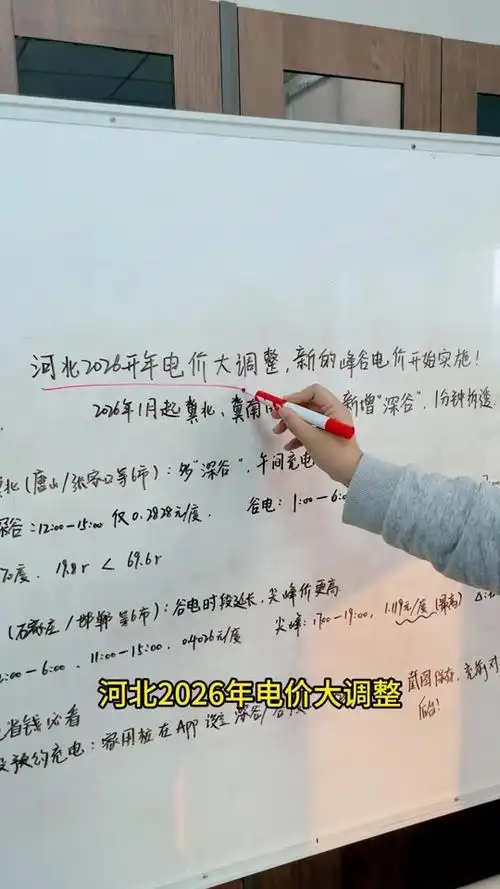 河北2026开年电价大调整，新的峰谷电价开始实施！
2026年1月起冀北、冀南 新增"深谷"，1分钟拆透
北（唐山/张家口等6市）：多"深谷"，午间充电
深谷：12:00-15:00 仅0.2828元/度． 谷电：1:00-6:0
70度． 19.8r < 69.6r
（石家庄/邯郸等6市）：谷电时段延长，尖峰价更高
:00-6:00．11:00-15:00．0.4026元/度 尖峰：17:00-19:00，1.119元/度（最高）
截图保存，充新对
后台！
省钱必看
预约充电：家用桩在App设立深谷/谷
河北2026年电价大调整